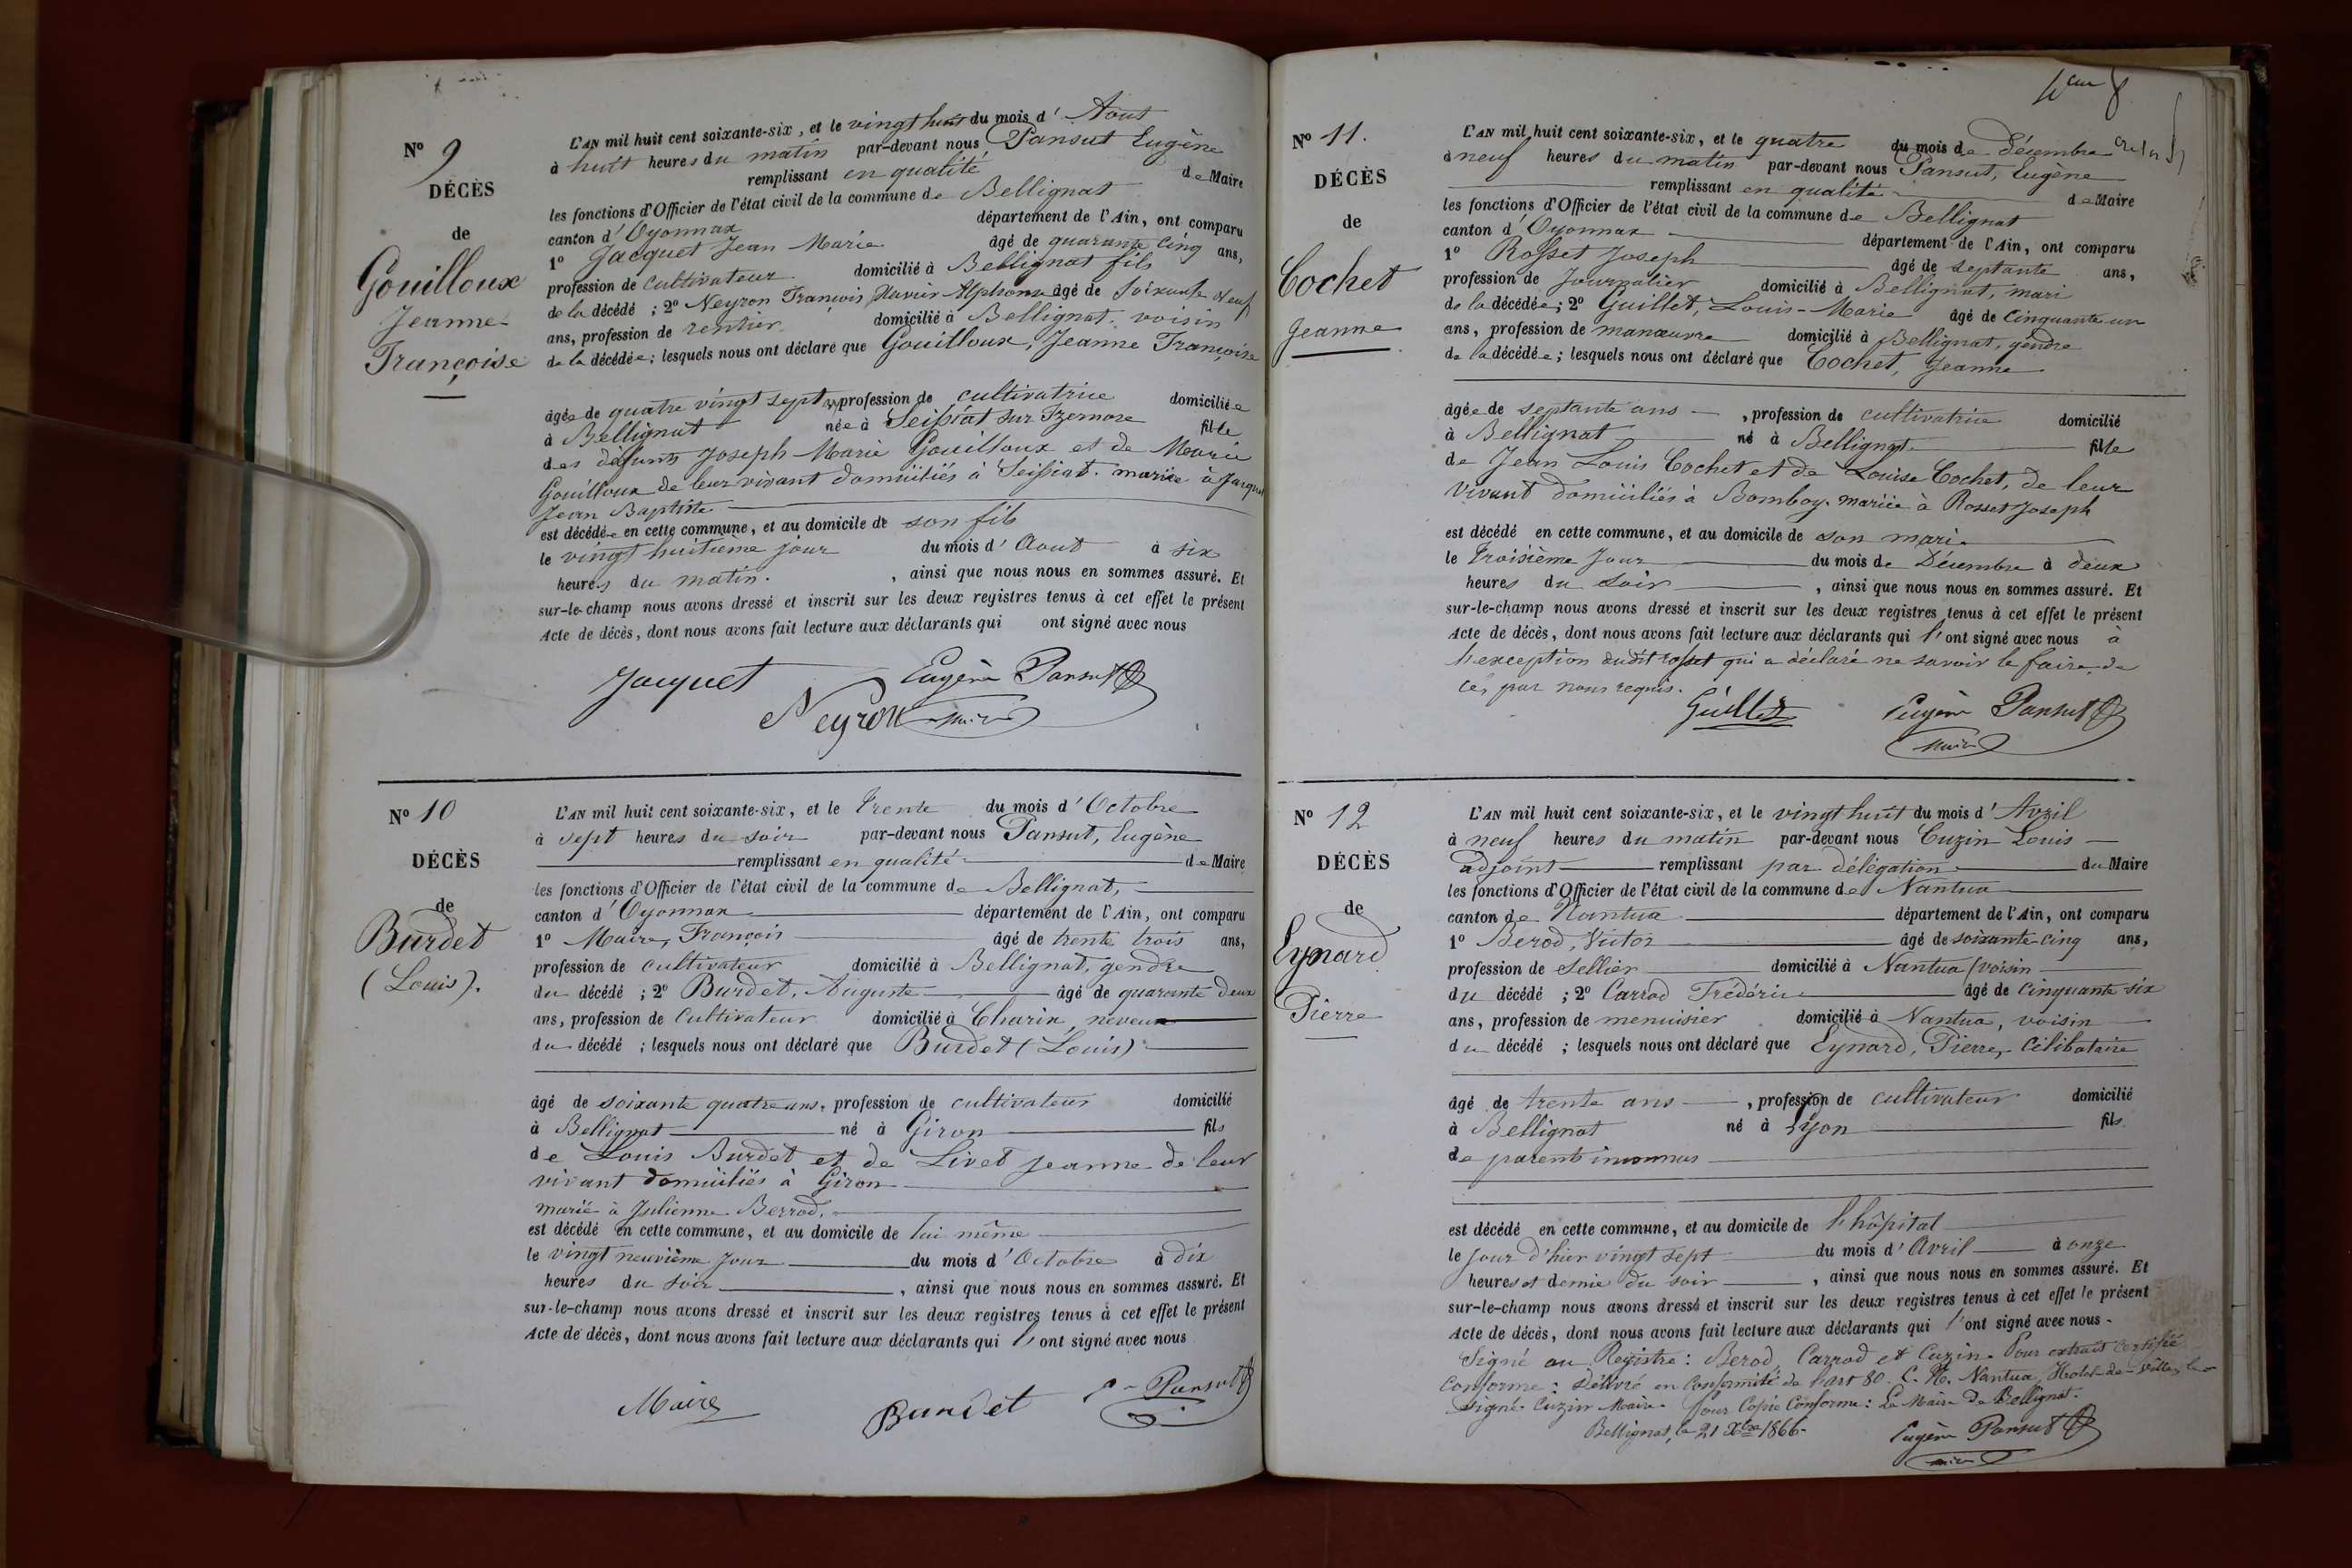 N° 9
DÉCÈS
de
Gouilloux
Jeanne
Françoise
L'AN mil huit cent soixante-six, et le vingt huit du mois d' Aout
à huit heures du matin par-devant nous Pansut Eugène
remplissant en qualité de Maire
les fonctions d'Officier de l'état civil de la commune de Bellignat
canton d' Oyonnax département de l'Ain, ont comparu
1° Jacquet Jean Marie âgé de quarante cinq ans,
profession de cultivateur domicilié à Bellignat fils
de la décédé ; 2° Neyron François Xavier Alphonse âgé de soixante neuf
ans, profession de rentier domicilié à Bellignat, voisin
de la décédée ; lesquels nous ont déclaré que Gouilloux, Jeanne Françoise
âgée de quatre vingt sept profession de cultivatrice domiciliée
à Bellignat née à Seissiat sur Izernore fille
des défunts Joseph Marie Gouilloux et de Marie
Gouilloux de leur vivant domiciliés à Seissiat. mariée à Jacquet
Jean Baptiste
est décédée en cette commune, et au domicile de son fils
le vingt huitième jour du mois d' Aout à six
heures du matin. , ainsi que nous nous en sommes assuré. Et
sur-le-champ nous avons dressé et inscrit sur les deux registres tenus à cet effet le présent
Acte de décès, dont nous avons fait lecture aux déclarants qui ont signé avec nous
Jacquet Eugène Pansut
Neyron maire
N° 10
DÉCÈS
de
Burdet
(Louis).
L'AN mil huit cent soixante-six, et le trente du mois d' Octobre
à sept heures du soir par-devant nous Pansut, Eugène
remplissant en qualité de Maire
les fonctions d'Officier de l'état civil de la commune de Bellignat,
canton d' Oyonnax département de l'Ain, ont comparu
1° Maire, François âgé de trente trois ans,
profession de cultivateur domicilié à Bellignat, gendre
du décédé ; 2° Burdet, Auguste âgé de quarante deux
ans, profession de Cultivateur domicilié à Charix, neveu
du décédé ; lesquels nous ont déclaré que Burdet (Louis)
âgé de soixante quatre ans, profession de cultivateur domicilié
à Bellignat né à Giron fils
de Louis Burdet et de Livet Jeanne de leur
vivant domiciliés à Giron
marié à Julienne Berrod.
est décédé en cette commune, et au domicile de lui même
le vingt neuvième jour du mois d' Octobre à dix
heures du soir , ainsi que nous nous en sommes assuré. Et
sur-le-champ nous avons dressé et inscrit sur les deux registres tenus à cet effet le présent
Acte de décès, dont nous avons fait lecture aux déclarants qui l' ont signé avec nous
Maire Burdet Pansut
N° 11.
DÉCÈS
de
Cochet
Jeanne
L'AN mil huit cent soixante-six, et le quatre du mois de Décembre
à neuf heures du matin par-devant nous Pansut, Eugène
remplissant en qualité de Maire
les fonctions d'Officier de l'état civil de la commune de Bellignat
canton d' Oyonnax département de l'Ain, ont comparu
1° Rosset Joseph âgé de septante ans,
profession de Journalier domicilié à Bellignat, mari
de la décédée ; 2° Guillet, Louis-Marie âgé de cinquante un
ans, profession de manœuvre domicilié à Bellignat, gendre
de la décédée ; lesquels nous ont déclaré que Cochet, Jeanne
âgée de septante ans , profession de cultivatrice domicilié
à Bellignat né à Bellignat fille
de Jean Louis Cochet et de Louise Cochet, de leur
vivant domiciliés à Bomboy. mariée à Rosset Joseph
est décédé en cette commune, et au domicile de son mari
le troisième jour du mois de Décembre à deux
heures du soir , ainsi que nous nous en sommes assuré. Et
sur-le-champ nous avons dressé et inscrit sur les deux registres tenus à cet effet le présent
Acte de décès, dont nous avons fait lecture aux déclarants qui l' ont signé avec nous à
l'exception dudit rosset qui a déclaré ne savoir le faire de
ce, par nous requis.
Guillet Eugène Pansut
maire
N° 12
DÉCÈS
de
Eynard
Pierre
L'AN mil huit cent soixante-six, et le vingt huit du mois d' Avril
à neuf heures du matin par-devant nous Cuzin Louis
adjoint remplissant par délégation du Maire
les fonctions d'Officier de l'état civil de la commune de Nantua
canton de Nantua département de l'Ain, ont comparu
1° Berod, Victor âgé de soixante cinq ans,
profession de sellier domicilié à Nantua (voisin
du décédé ; 2° Carrod Frédéric âgé de cinquante six
ans, profession de menuisier domicilié à Nantua, voisin
du décédé ; lesquels nous ont déclaré que Eynard, Pierre, Célibataire
âgé de trente ans , profession de cultivateur domicilié
à Bellignat né à Lyon fils
de parents inconnus
est décédé en cette commune, et au domicile de l'hôpital
le jour d'hier vingt sept du mois d' Avril à onze
heures et demie du soir , ainsi que nous nous en sommes assuré. Et
sur-le-champ nous avons dressé et inscrit sur les deux registres tenus à cet effet le présent
Acte de décès, dont nous avons fait lecture aux déclarants qui l' ont signé avec nous.
Signé au Registre : Berod, Carrod et Cuzin. Pour extrait certifié
Conforme : Délivré en conformité de l'art 80. C. N. Nantua, Hotel-de-Ville, le
Signé Cuzin Maire. Pour Copie Conforme : Le Maire de Bellignat.
Bellignat, le 21 Xbre 1866. Eugène Pansut
maire